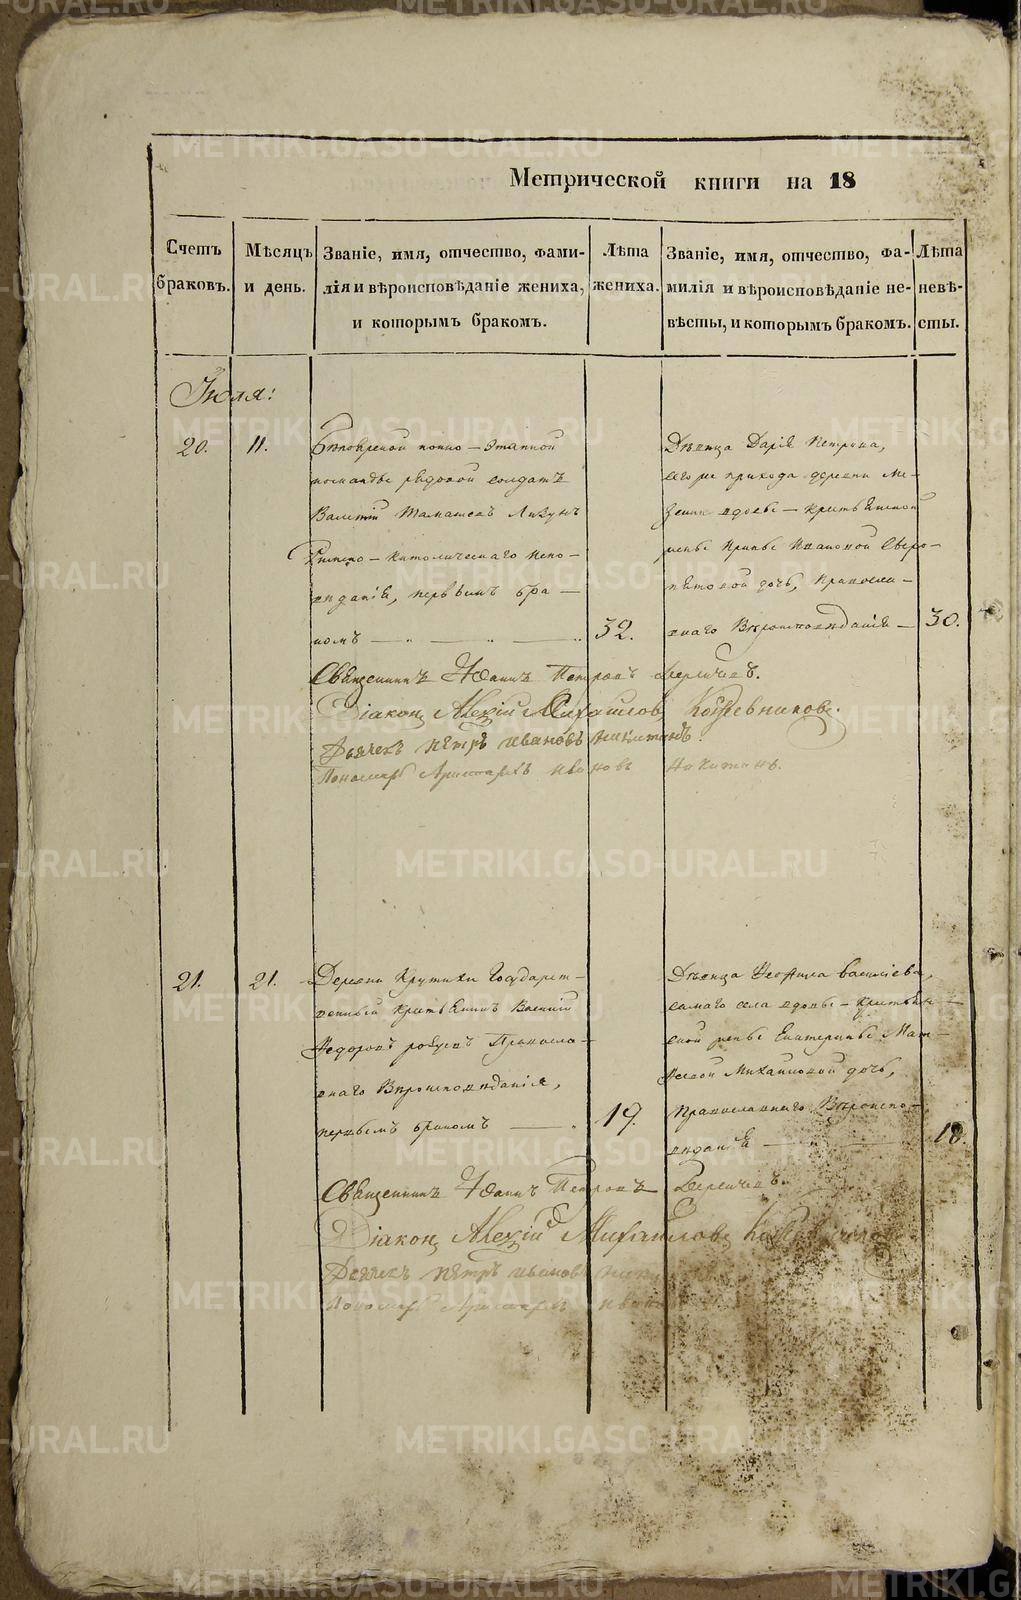 Метрической книги на 18
Счетъ браковъ.
Мѣсяцъ и день.
Званіе, имя, отчество, фами-
лія и вѣроисповѣданіе жениха,
и которымъ бракомъ.
Лѣта жениха.
Званіе, имя, отчество, фа-
милія и вѣроисповѣданіе не-
вѣсты, и которымъ бракомъ.
Лѣта невѣ-
сты.
Іюля:
20.
11.
конно — этапной
команды рядовой солдатъ
Римско — католическаго испо-
веданія, первымъ бра —
комъ
32.
Дѣвица Дарія Петрова,
сего же прихода деревни
вдовы — крестьянской
дочь, православ-
наго Вѣроисповеданія —
30.
Священникъ Іоаннъ Петровъ
Діаконъ Алексій Михайловъ Кожевниковъ.
Дьячекъ Петръ Ивановъ Никитинъ.
Пономарь Аристархъ Ивановъ Никитинъ.
21.
21.
Деревни Крутихи Государст-
венный крестьянинъ Василій
Федоровъ Правосла-
внаго Вѣроисповеданія,
первымъ бракомъ
19.
Дѣвица Васильева,
самаго села вдовы — крестьян-
ской женки Екатерины Мат-
феевой Михайловой дочь,
Православнаго Вѣроиспо-
веданія
18.
Священникъ Іоаннъ Петровъ
Діаконъ Алексій Михайловъ Кожевниковъ
Дьячекъ Петръ Ивановъ
Пономарь Аристархъ Ивановъ
METRIKI.GASO-URAL.RU